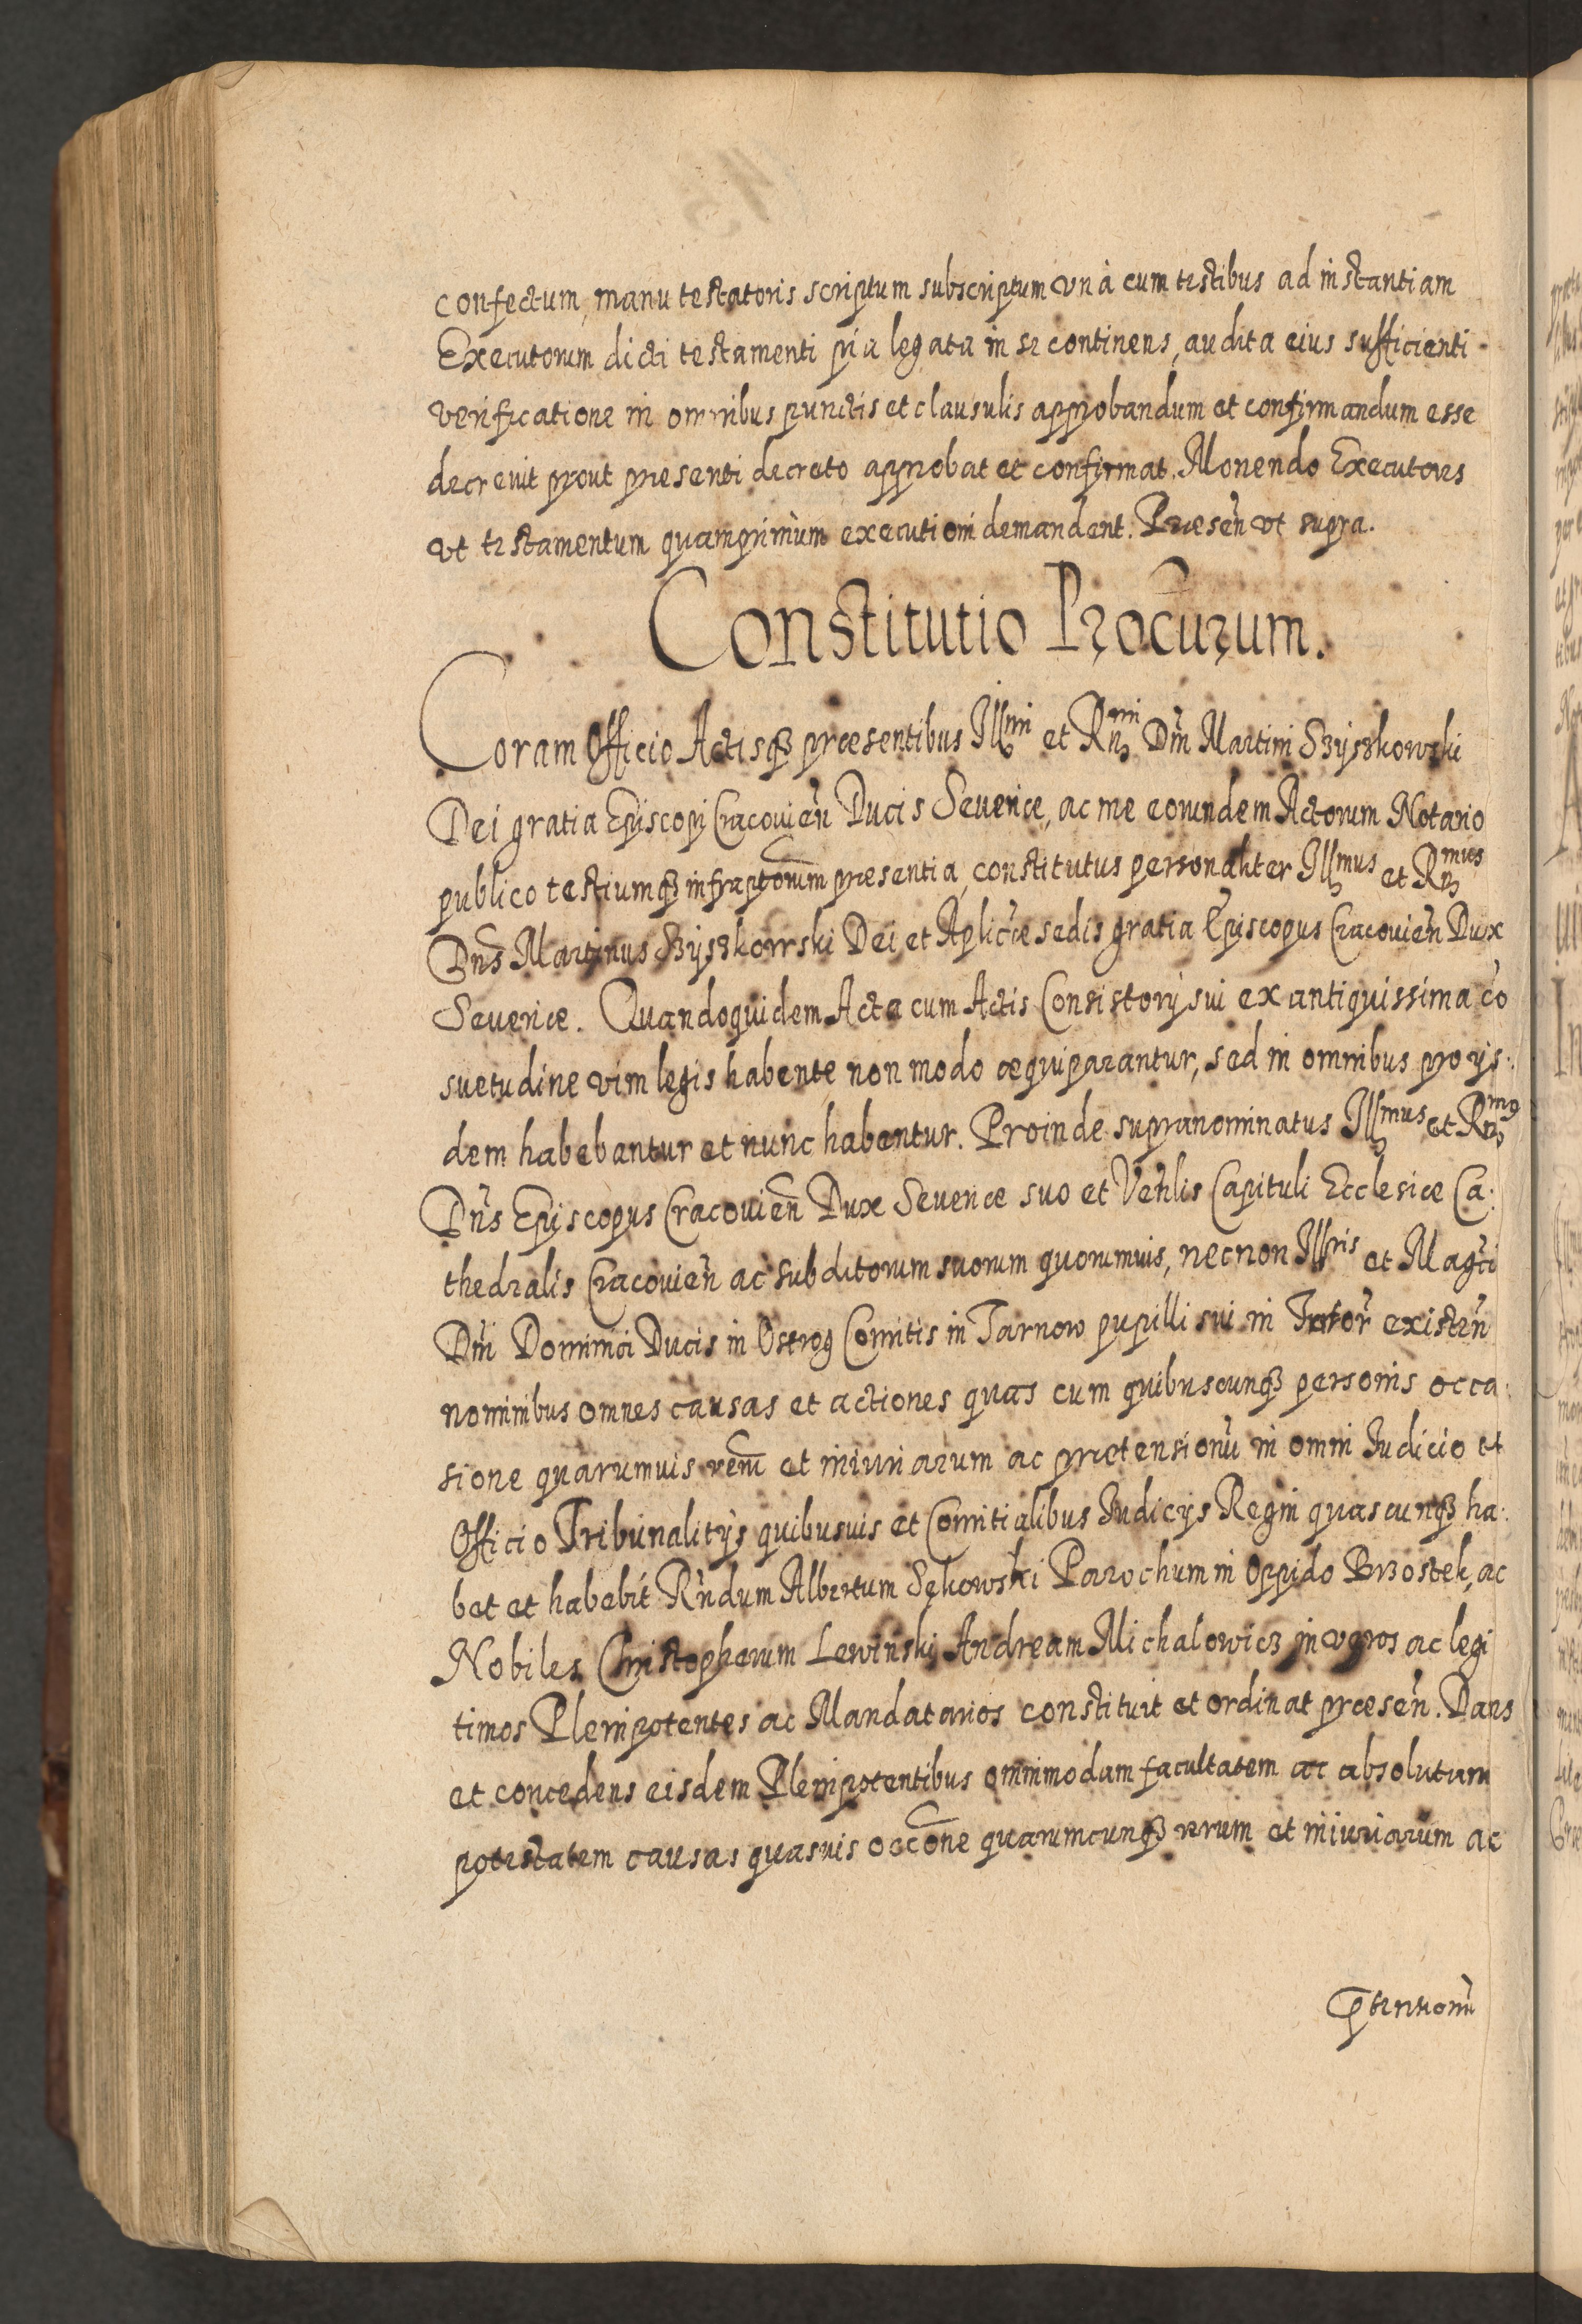 confectum, manu testatoris scriptum subscriptum vnà cum testibus ad instantiam
Executorum dicti testamenti pia legata in se continens, audita eius sufficienti
verificatione in omnibus punctis et clausulis approbandum et confirmandum esse
decreuit prout presenti decreto approbat et confirmat. Monendo Executores
vt testamentum quamprimùm executioni demandent. Præsen̄ vt supra.
Constitutio Procūrum.
Coram Officio Actisqꝫ præsentibus Illmi et Rmi Dn̄i Martini Szyszkowski
Dei gratia Episcopi Cracouien̄ Ducis Seueriæ, ac me eorundem Actorum Notario
publico testiumqꝫ infraptorum præsentia, constitutus personaliter Illmus et Rmus
Dn̄s Martinus Szyszkowski Dei et Aplicæ sedis gratia Episcopus Cracouien̄ Dux
Seueriæ. Quandoquidem Acta cum Actis Consistorÿ sui ex antiquissima cō
suetudine vim legis habente non modo æquiparantur, sed in omnibus pro ijs.
dem habebantur et nunc habentur. Proinde supranominatus Illmus et Rm9
Dn̄s Episcopus Cracouien̄ Dux Seueriæ suo et Vēnlis Capituli Ecclesiæ Ca.
thedralis Cracouien̄ ac subditorum suorum quorumuis, necnon Illris et Magci
Dn̄i Dominici Ducis in Ostrog Comitis in Tarnow pupilli sui in Tutor̄ existen̄
nominibus omnes causas et actiones quas cum quibuscunqꝫ personis occa.
sione quarumuis rerum et iniuriarum ac prætensionū in omni Iudicio et
Officio Tribunalitijs quibusuis et Comitialibus Iudicijs Regni quascunqꝫ ha.
bet et habebit Rn̄dum Albertum Sękowski Parochum in Oppido Brzostek, ac
Nobiles Christopherum Lewiński Andream Michalowicz in veros ac legi
timos Plenipotentes ac Mandatarios constituit et ordinat præsen̄. Dans
et concedens eisdem Plenipotentibus omnimodam facultatem ac absolutam
potestatem causas quasuis occōne quarumcunqꝫ rerum et iniuriarum ac
p̄tensionū